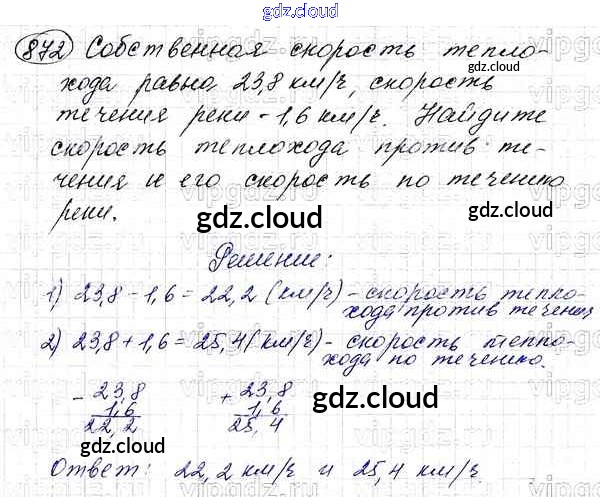 gdz.cloud
872 Собственная скорость тепло-
хода равна 23,8 км/ч, скорость
течения реки - 1,6 км/ч. Найдите
скорость теплохода против те-
чения и его скорость по течению
реки.
gdz.cloud
gdz.cloud
gdz.cloud
gdz.cloud
Решение:
1) 23,8 - 1,6 = 22,2 (км/ч) - скорость тепло-
хода против течения
2) 23,8 + 1,6 = 25,4 (км/ч) - скорость тепло-
хода по течению.
- 23,8 + 23,8
1,6 1,6
22,2 25,4
gdz.cloud
gdz.cloud
Ответ: 22,2 км/ч и 25,4 км/ч.